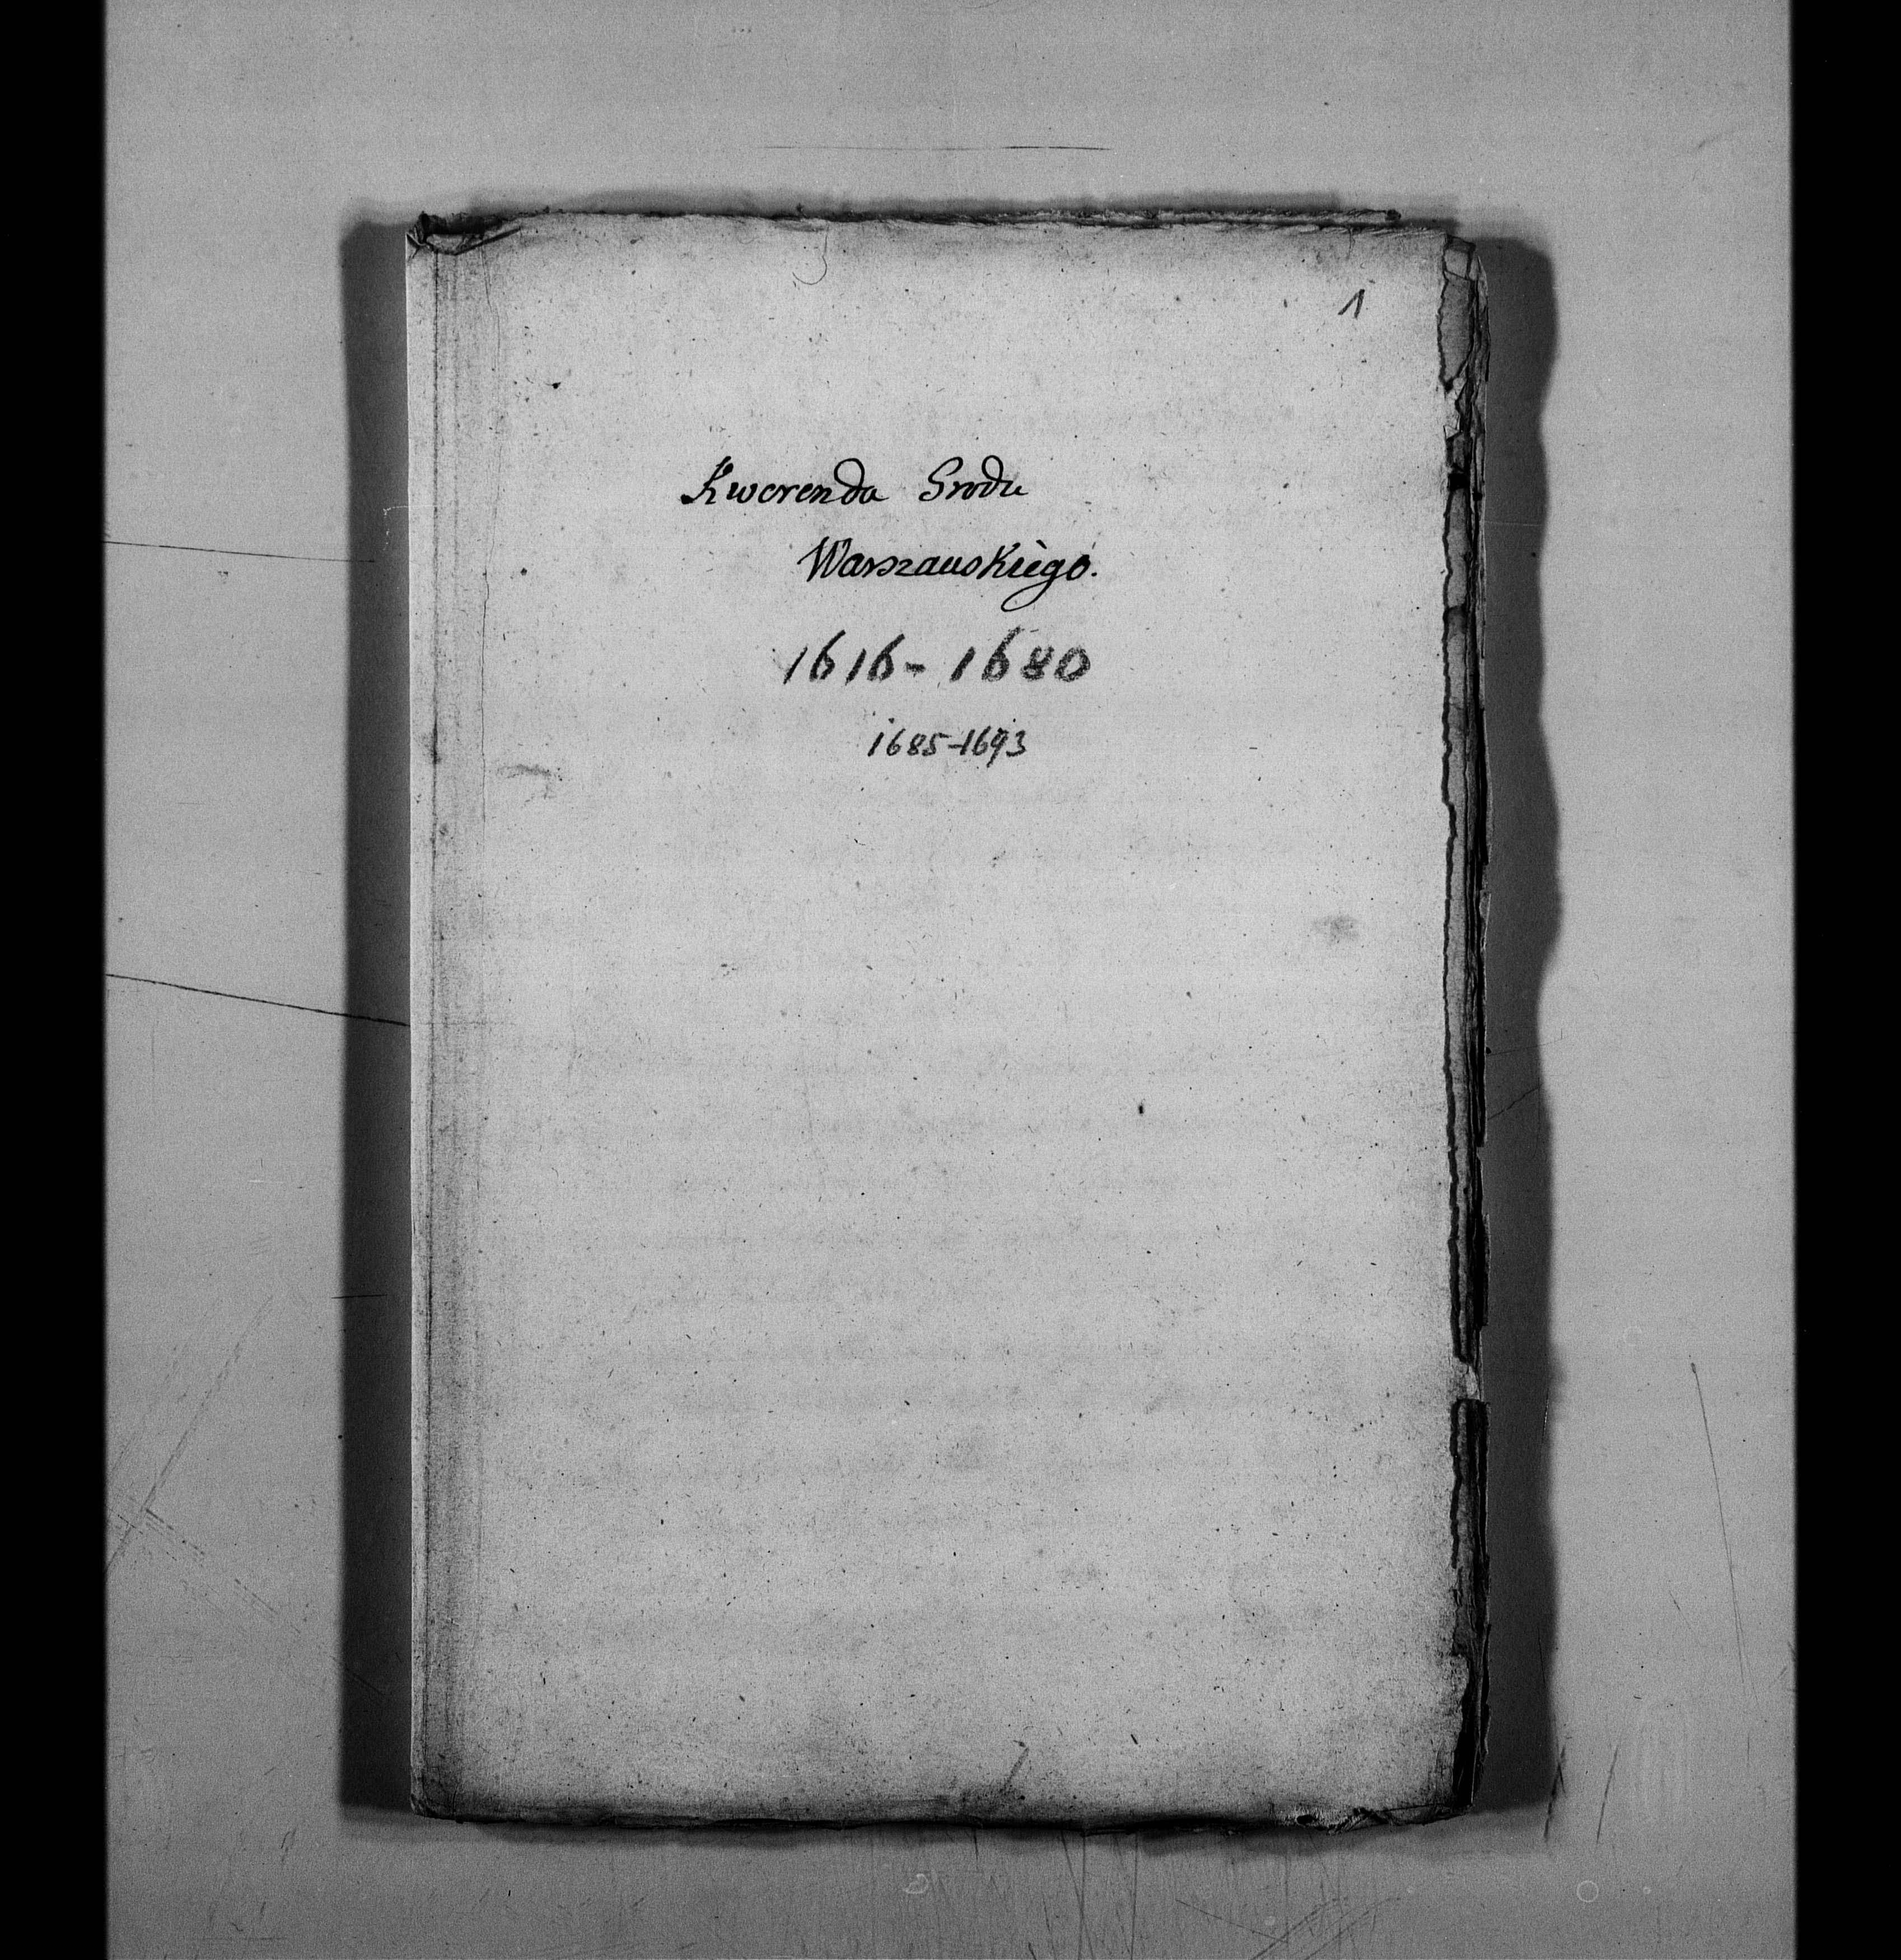 1
Kwerenda Grodu
Warszawskiego.
1616-1680
1685-1693